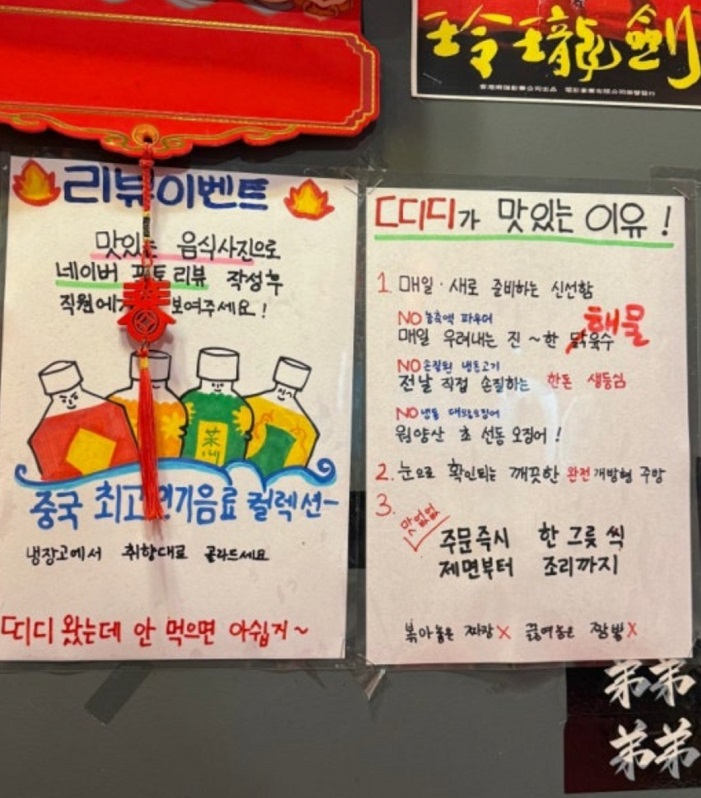 玲瓏劍
리뷰이벤트
맛있는 음식사진으로
네이버 포토리뷰 작성후
직원에게 보여주세요!
春
菜
중국 최고 인기음료 컬렉션~
냉장고에서 취향대로 골라드세요
띠디 왔는데 안 먹으면 아쉽지~
띠디디가 맛있는 이유!
1. 매일·새로 준비하는 신선함
NO 농축액 파우더
해물
매일 우려내는 진~한 닭육수
NO 손질된 냉동고기
전날 직접 손질하는 한돈 생등심
NO 냉동 대왕오징어
원양산 초 선동 오징어!
2. 눈으로 확인되는 깨끗한 완전개방형 주방
3.
맛없없
주문즉시 한 그릇 씩
제면부터 조리까지
볶아놓은 짜장 X 끓여놓은 짬뽕 X
弟弟
弟弟